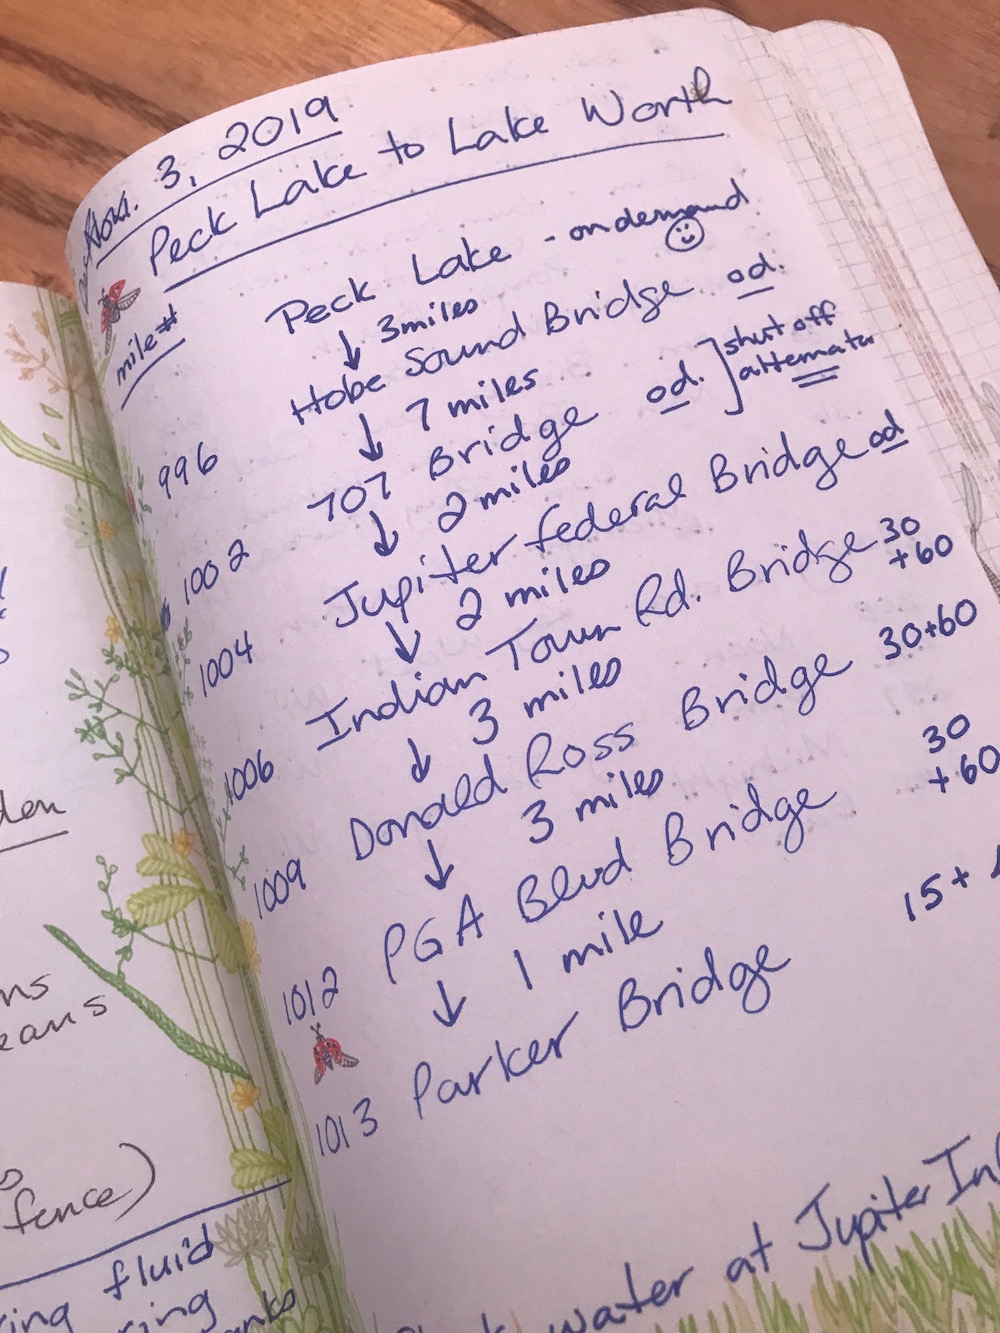 Nov. 3, 2019
Peck Lake to Lake Worth
mile#
Peck Lake - on demand
↓ 3 miles
Hobe Sound Bridge od.
↓ 7 miles
996 707 Bridge od. ] shut off alternator
↓ 2 miles
1002 Jupiter federal Bridge od
↓ 2 miles
1004 Indian Town Rd. Bridge 30 +60
↓ 3 miles
1006 Donald Ross Bridge 30+60
↓ 3 miles
1009 PGA Blvd Bridge 30 +60
↓ 1 mile
1012 Parker Bridge 15+
1013
water at Jupiter
fence)
fluid